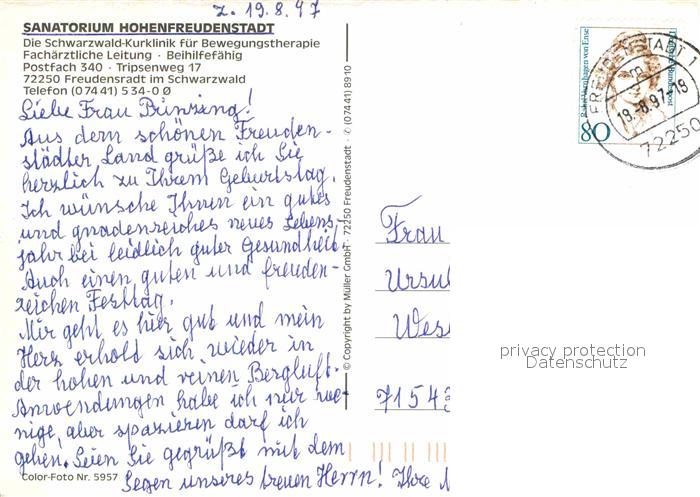 z. 19.8.97
SANATORIUM HOHENFREUDENSTADT
Die Schwarzwald-Kurklinik für Bewegungstherapie
Fachärztliche Leitung · Beihilfefähig
Postfach 340 · Tripsenweg 17
72250 Freudensradt im Schwarzwald
Telefon (07441) 534-0 Ø
Liebe Frau Brinzing!
Aus dem schönen Freuden-
städter Land grüße ich Sie
herzlich zu Ihrem Geburtstag.
Ich wünsche Ihnen ein gutes
und gnadenreiches neues Lebens-
jahr bei leidlich guter Gesundheit.
Auch einen guten und freuden-
reichen Festtag.
Mir geht es hier gut und mein
Herz erhold sich wieder in
der hohen und reinen Bergluft.
Anwendungen habe ich nur we-
nige, aber spazieren darf ich
gehen. Seien Sie gegrüßt mit dem
Segen unseres treuen Herrn! Ihre
Color-Foto Nr. 5957
© Copyright by Müller GmbH · 72250 Freudenstadt · ✆ (07441) 8910
Rahel Varnhagen von Ense
Deutsche Bundespost
80
FREUDENSTADT 1
m
19.-8.97-18
72250
Frau
Ursul
Wes
71543
privacy protection
Datenschutz